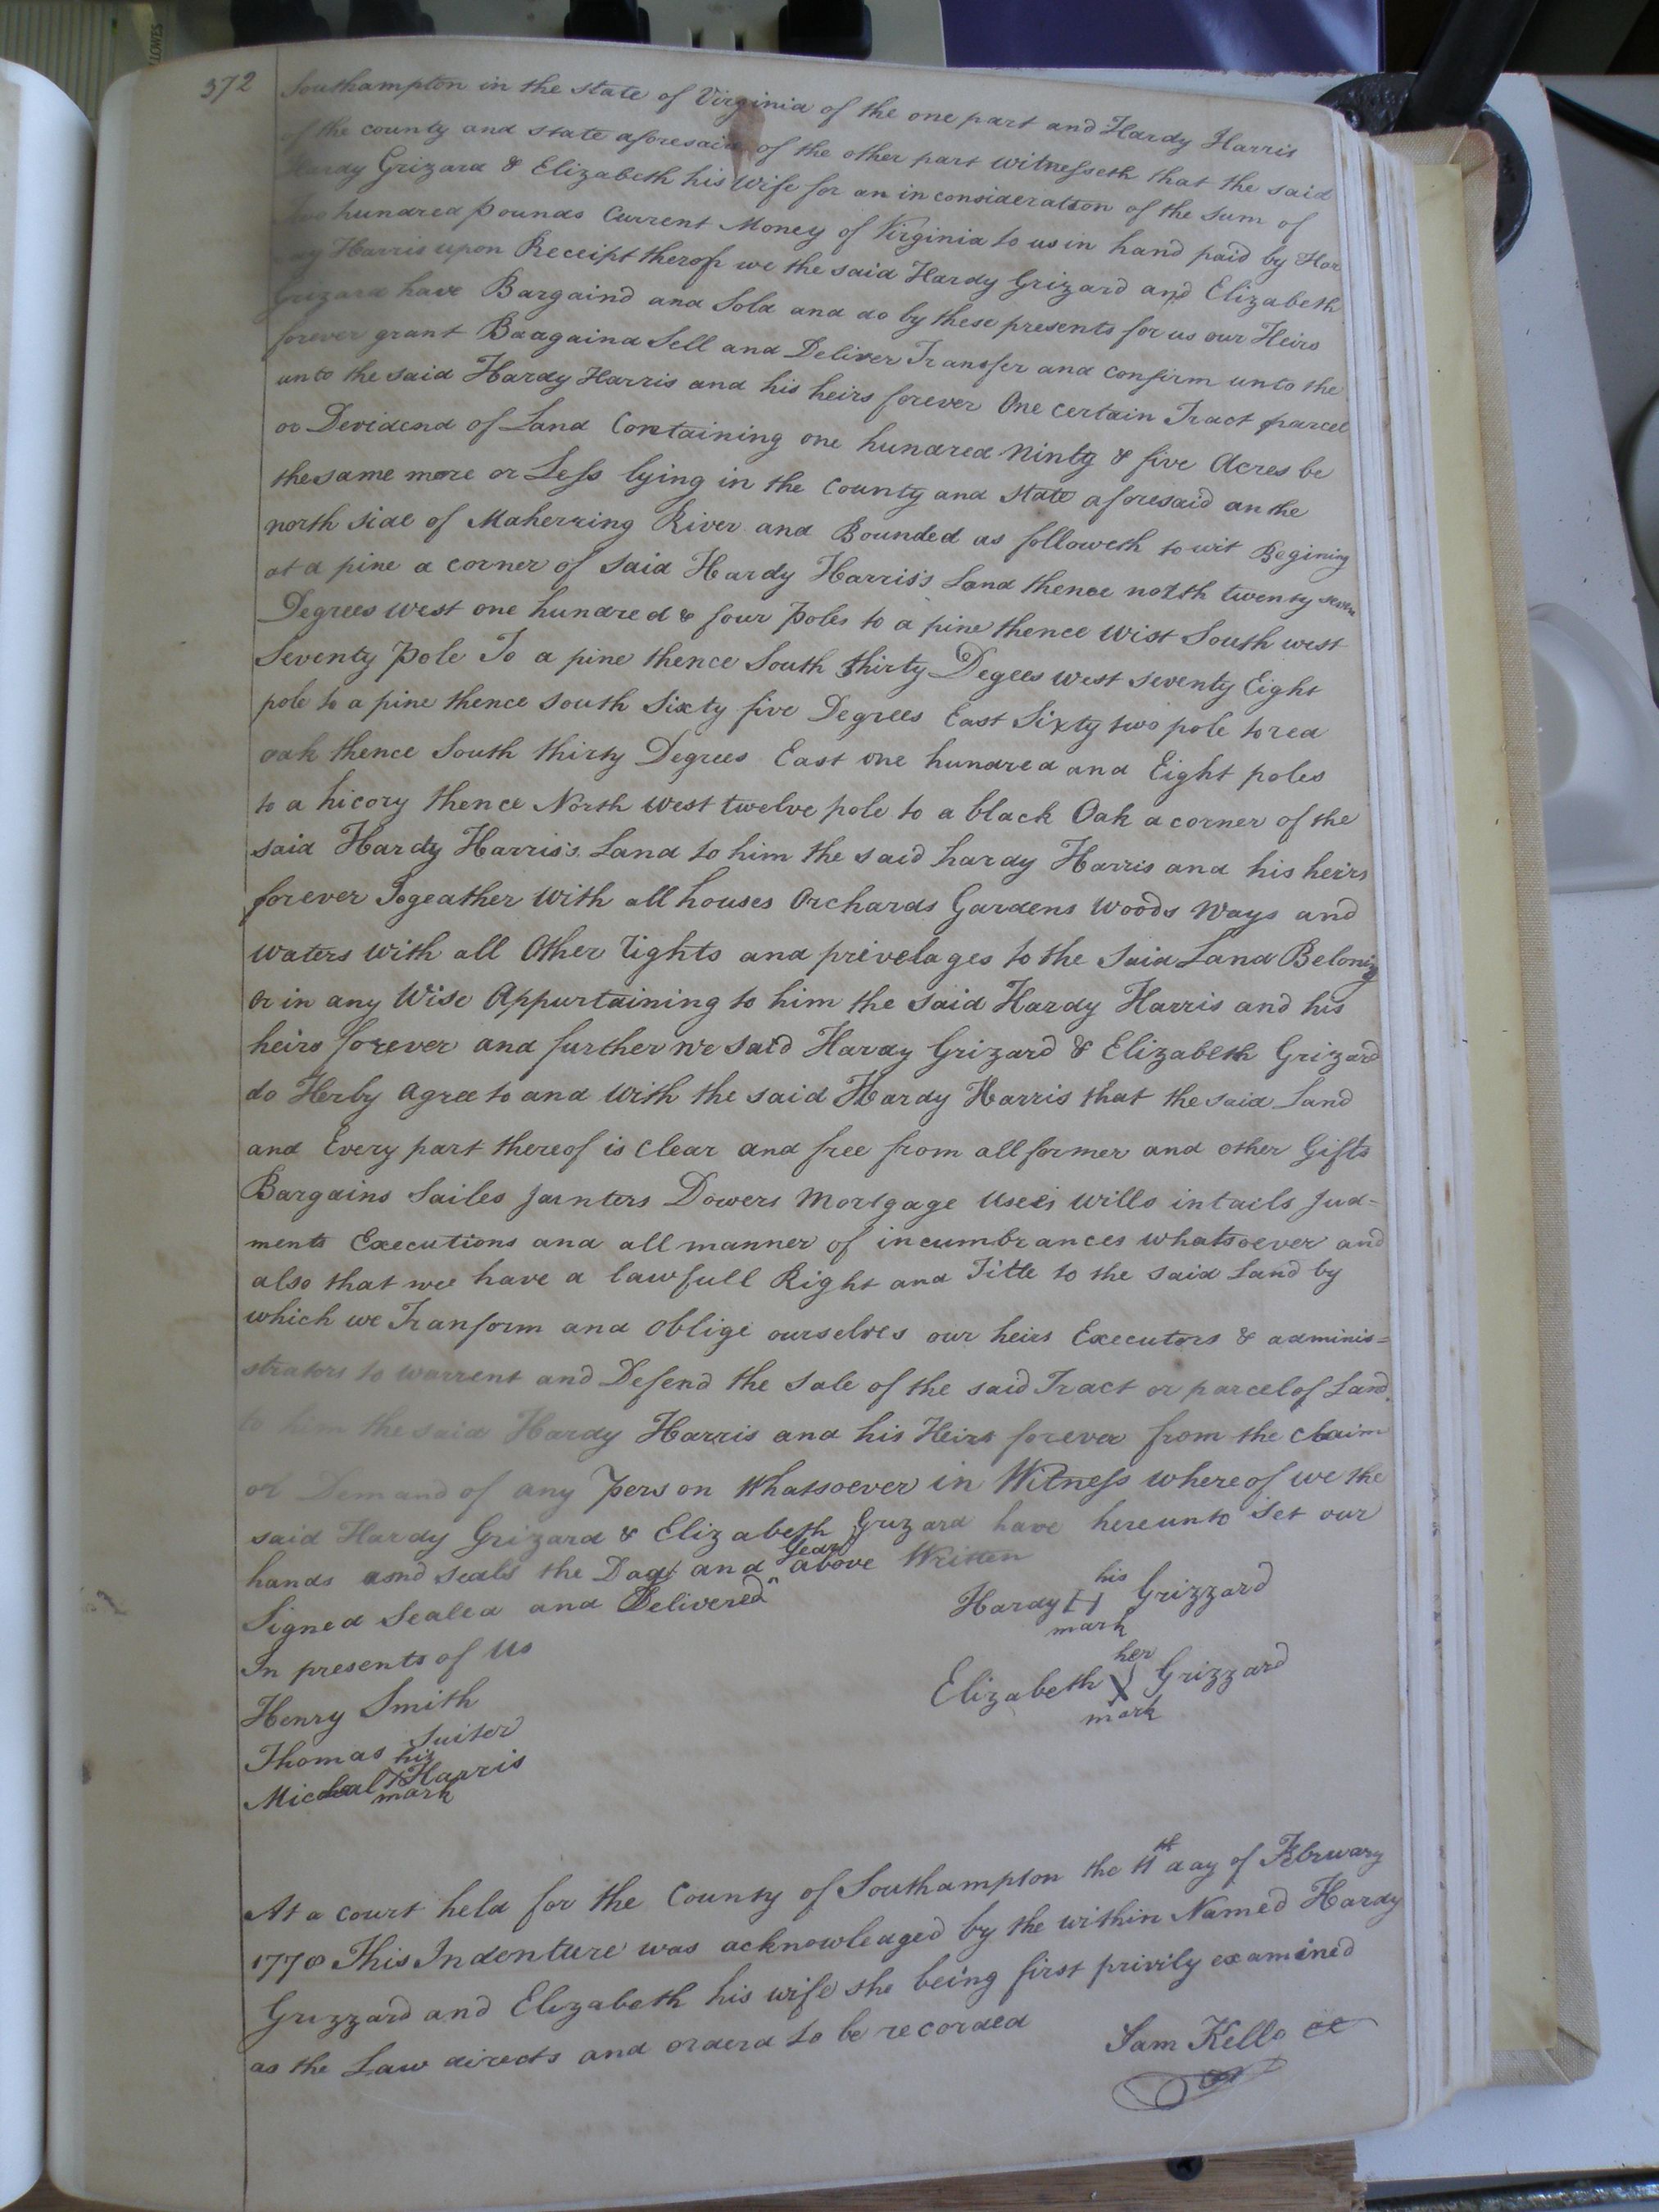 372
Southampton in the state of Virginia of the one part and Hardy Harris
of the county and state aforesaid of the other part Witnesseth that the said
Hardy Grizard & Elizabeth his Wife for an in consideration of the sum of
Two hundred pounds Current Money of Virginia to us in hand paid by Har
dy Harris upon Receipt therof we the said Hardy Grizard and Elizabeth
Grizard have Bargaind and Sold and do by these presents for us our Heirs
forever grant Baagaind Sell and Deliver Transfer and confirm unto the
unto the said Hardy Harris and his heirs forever One certain Tract parcel
or Devidend of Land Containing one hundred Ninty & five Acres be
the same more or Less lying in the County and State aforesaid an the
north side of Maherring River and Bounded as followeth to wit Begining
at a pine a corner of said Hardy Harris's Land thence north twenty seven
Degrees west one hundred & four poles to a pine thence Wist South west
Seventy Pole To a pine thence South thirty Degees west seventy Eight
pole to a pine thence south Sixty five Degrees East Sixty two pole to red
oak thence South thirty Degrees East one hundred and Eight poles
to a hicory thence North west twelve pole to a black Oak a corner of the
said Hardy Harris's Land to him the said hardy Harris and his heirs
forever Togeather With all houses Orchards Gardens Woods Ways and
Waters With all Other Rights and privelages to the Said Land Belonig
Or in any Wise Appurtaining to him the said Hardy Harris and his
heirs forever and further we said Hardy Grizard & Elizabeth Grizard
do Herby agree to and With the said Hardy Harris that the said Land
and Every part thereof is Clear and free from all former and other Gifts
Bargains Sailes Jointers Dowers Mortgage Uses wills intails Jud=
ments Executions and all manner of incumbrances whatsoever and
also that wee have a lawfull Right and Title to the said Land by
which we Tranform and oblige ourselves our heirs Executors & adminis=
strators to warrent and Defend the sale of the said Tract or parcel of Land
to him the said Hardy Harris and his Heirs forever from the Claim
or Demand of any Person Whatsoever in Witness where of we the
said Hardy Grizard & Elizabeth Grizard have hereunto Set our
hands and seals the Day and Year above Written
Signed Sealed and Delivered
In presents of Us
Hardy his H mark Grizzard
Elizabeth her X mark Grizzard
Henry Smith
Thomas Suiter
Micheal his X mark Harris
At a court held for the County of Southampton the 11th day of February
1778 This Indenture was acknowledged by the within Named Hardy
Grizzard and Elizabeth his wife she being first privily examined
as the Law directs and orderd to be recorded
Sam Kello